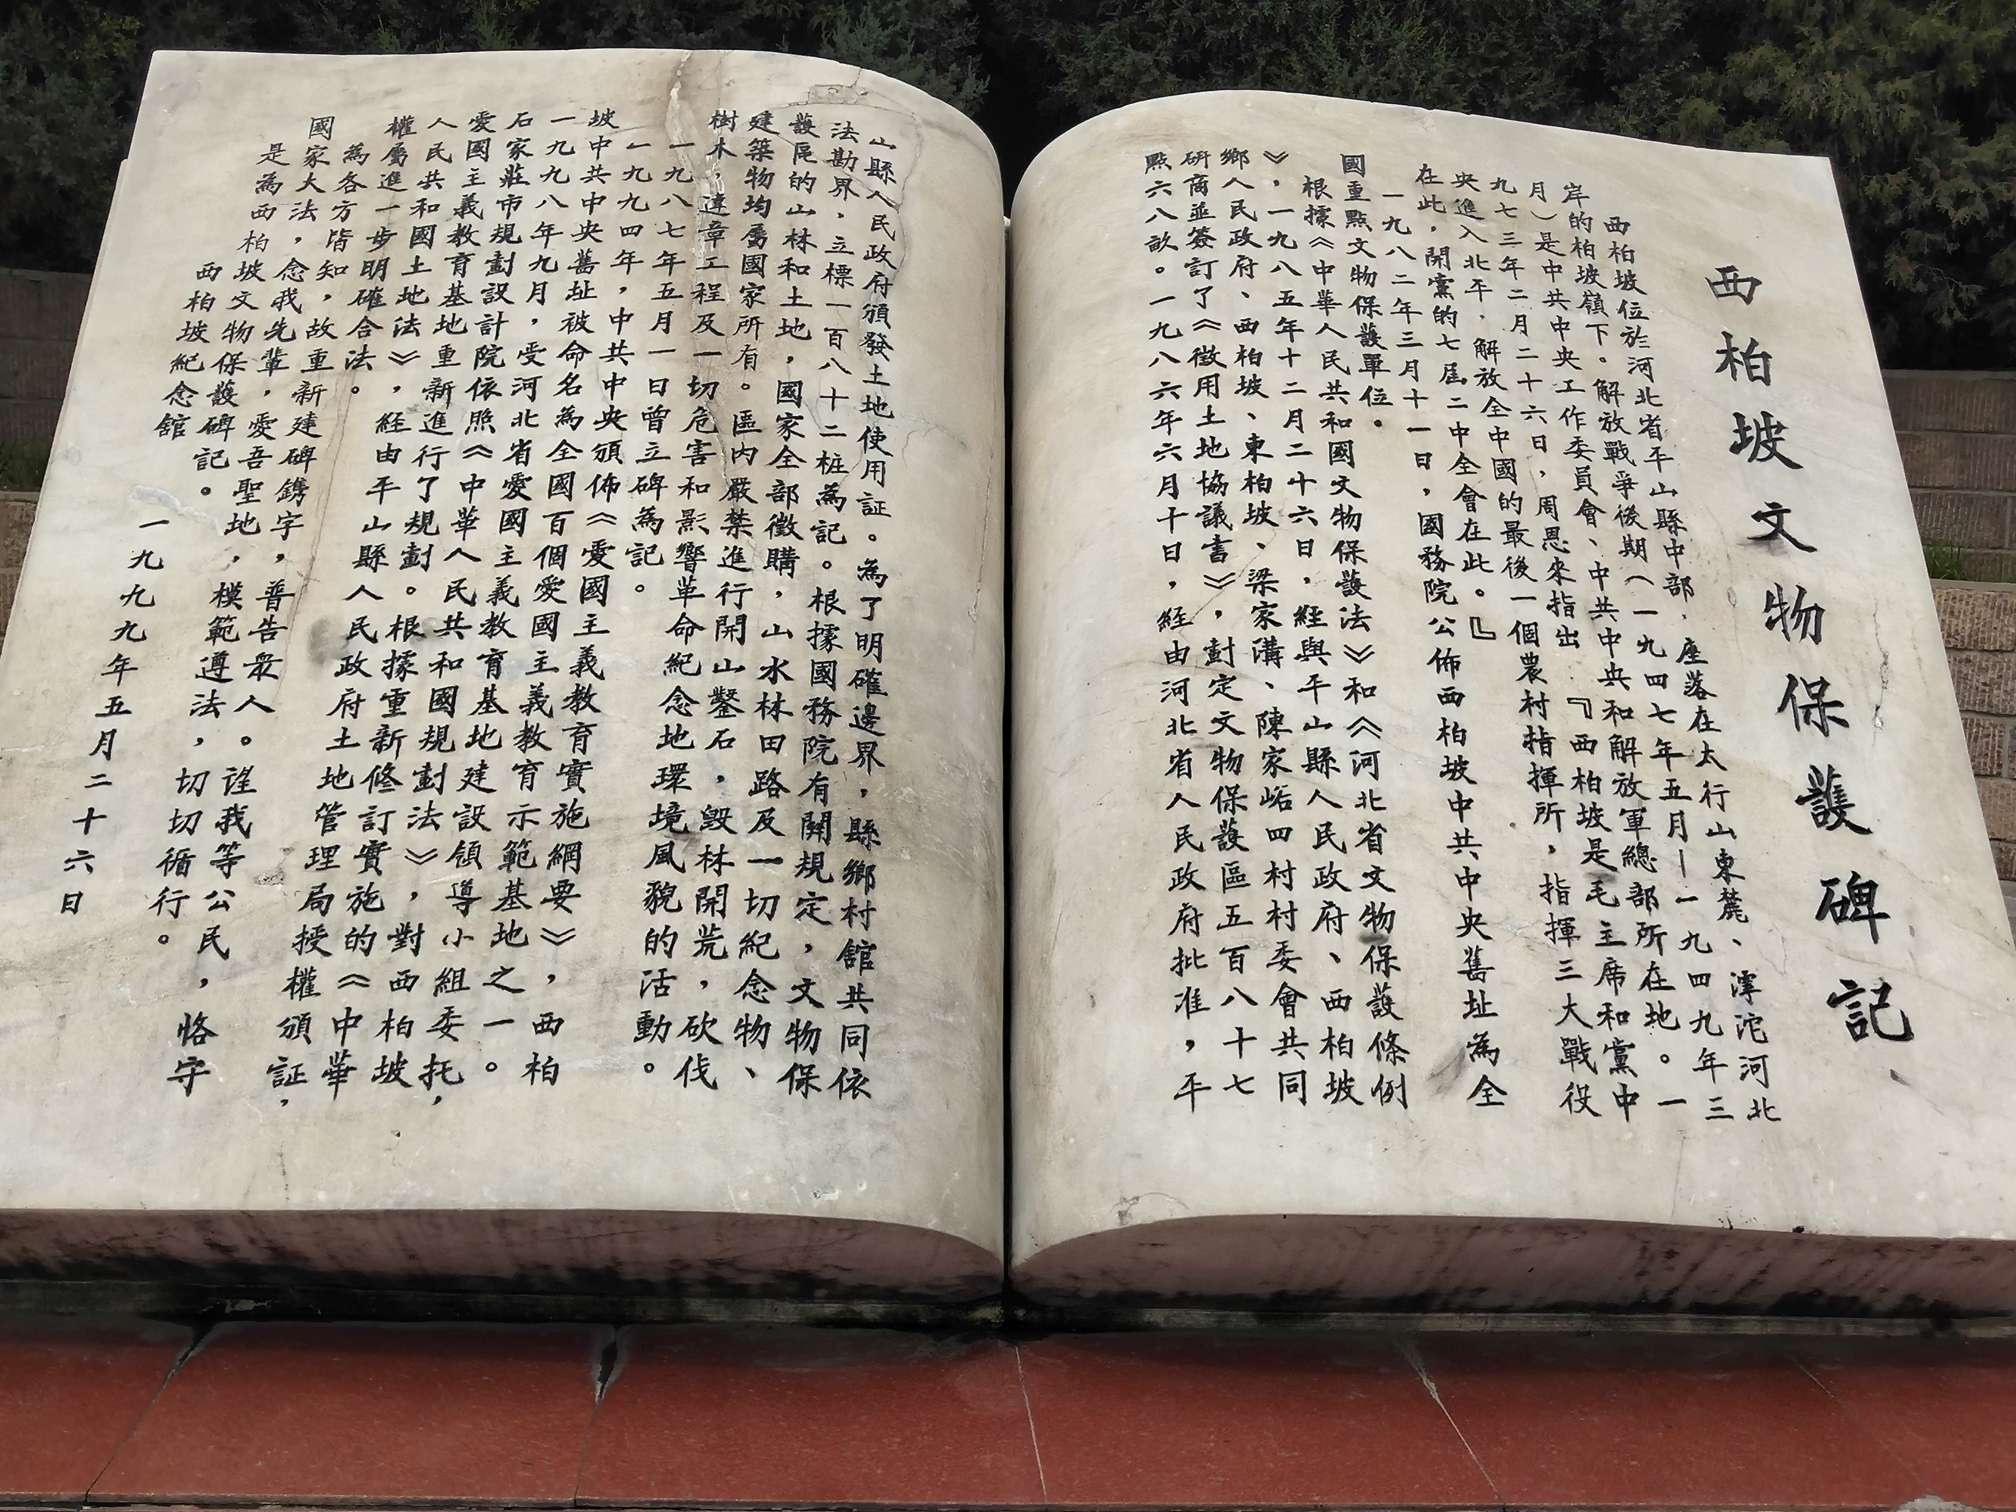 西柏坡文物保護碑記
西柏坡位於河北省平山縣中部，座落在太行山東麓、滹沱河北
岸的柏坡嶺下。解放戰爭後期（一九四七年五月—一九四九年三
月）是中共中央工作委員會、中共中央和解放軍總部所在地。一
九七三年二月二十六日，周恩來指出『西柏坡是毛主席和黨中
央進入北平，解放全中國的最後一個農村指揮所，指揮三大戰役
在此，開黨的七屆二中全會在此。』
一九八二年三月十一日，國務院公佈西柏坡中共中央舊址為全
國重點文物保護單位。
根據《中華人民共和國文物保護法》和《河北省文物保護條例
》，一九八五年十二月二十六日，經與平山縣人民政府、西柏坡
鄉人民政府、西柏坡、東柏坡、梁家溝、陳家峪四村村委會共同
研商並簽訂了《徵用土地協議書》，劃定文物保護區五百八十七
點六八畝。一九八六年六月十日，經由河北省人民政府批准，平
山縣人民政府頒發土地使用証。為了明確邊界，縣鄉村館共同依
法勘界，立標一百八十二桩為記。根據國務院有関規定，文物保
護區的山林和土地，國家全部徵購，山水林田路及一切紀念物、
建築物均屬國家所有。區内嚴禁進行開山鑿石，毀林開荒，砍伐
樹木，違章工程及一切危害和影響革命紀念地環境風貌的活動。
一九八七年五月一日曾立碑為記。
一九九四年，中共中央頒佈《愛國主義教育實施綱要》，西柏
坡中共中央舊址被命名為全國百個愛國主義教育示範基地之一。
一九九八年九月，受河北省愛國主義教育基地建設領導小組委托，
石家莊市規劃設計院依照《中華人民共和國規劃法》，對西柏坡
愛國主義教育基地重新進行了規劃。根據重新修訂實施的《中華
人民共和國土地法》，経由平山縣人民政府土地管理局授權頒証，
權屬進一步明確合法。
為各方皆知，故重新建碑鐫字，普告衆人。謹我等公民，恪守
國家大法，念我先輩，愛吾聖地，模範遵法，切切循行。
是為西柏坡文物保護碑記。
西柏坡紀念舘
一九九九年五月二十六日